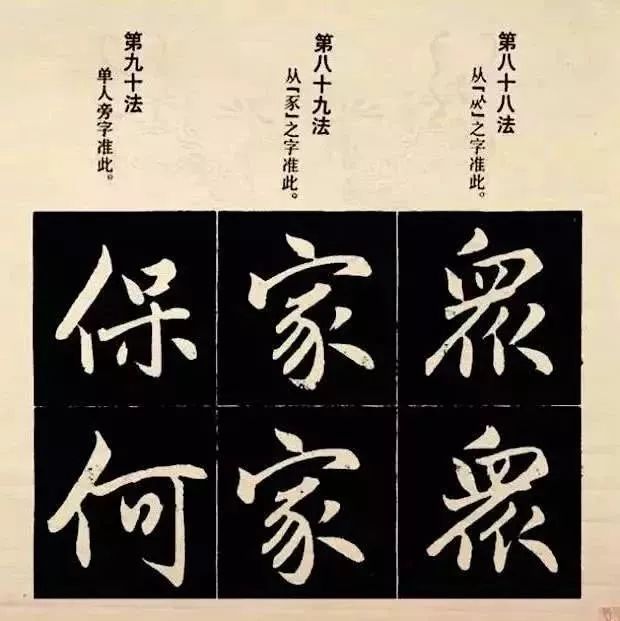 第八十八法
从「乑」之字准此。
衆
衆
第八十九法
从「豕」之字准此。
家
家
第九十法
单人旁字准此。
保
何